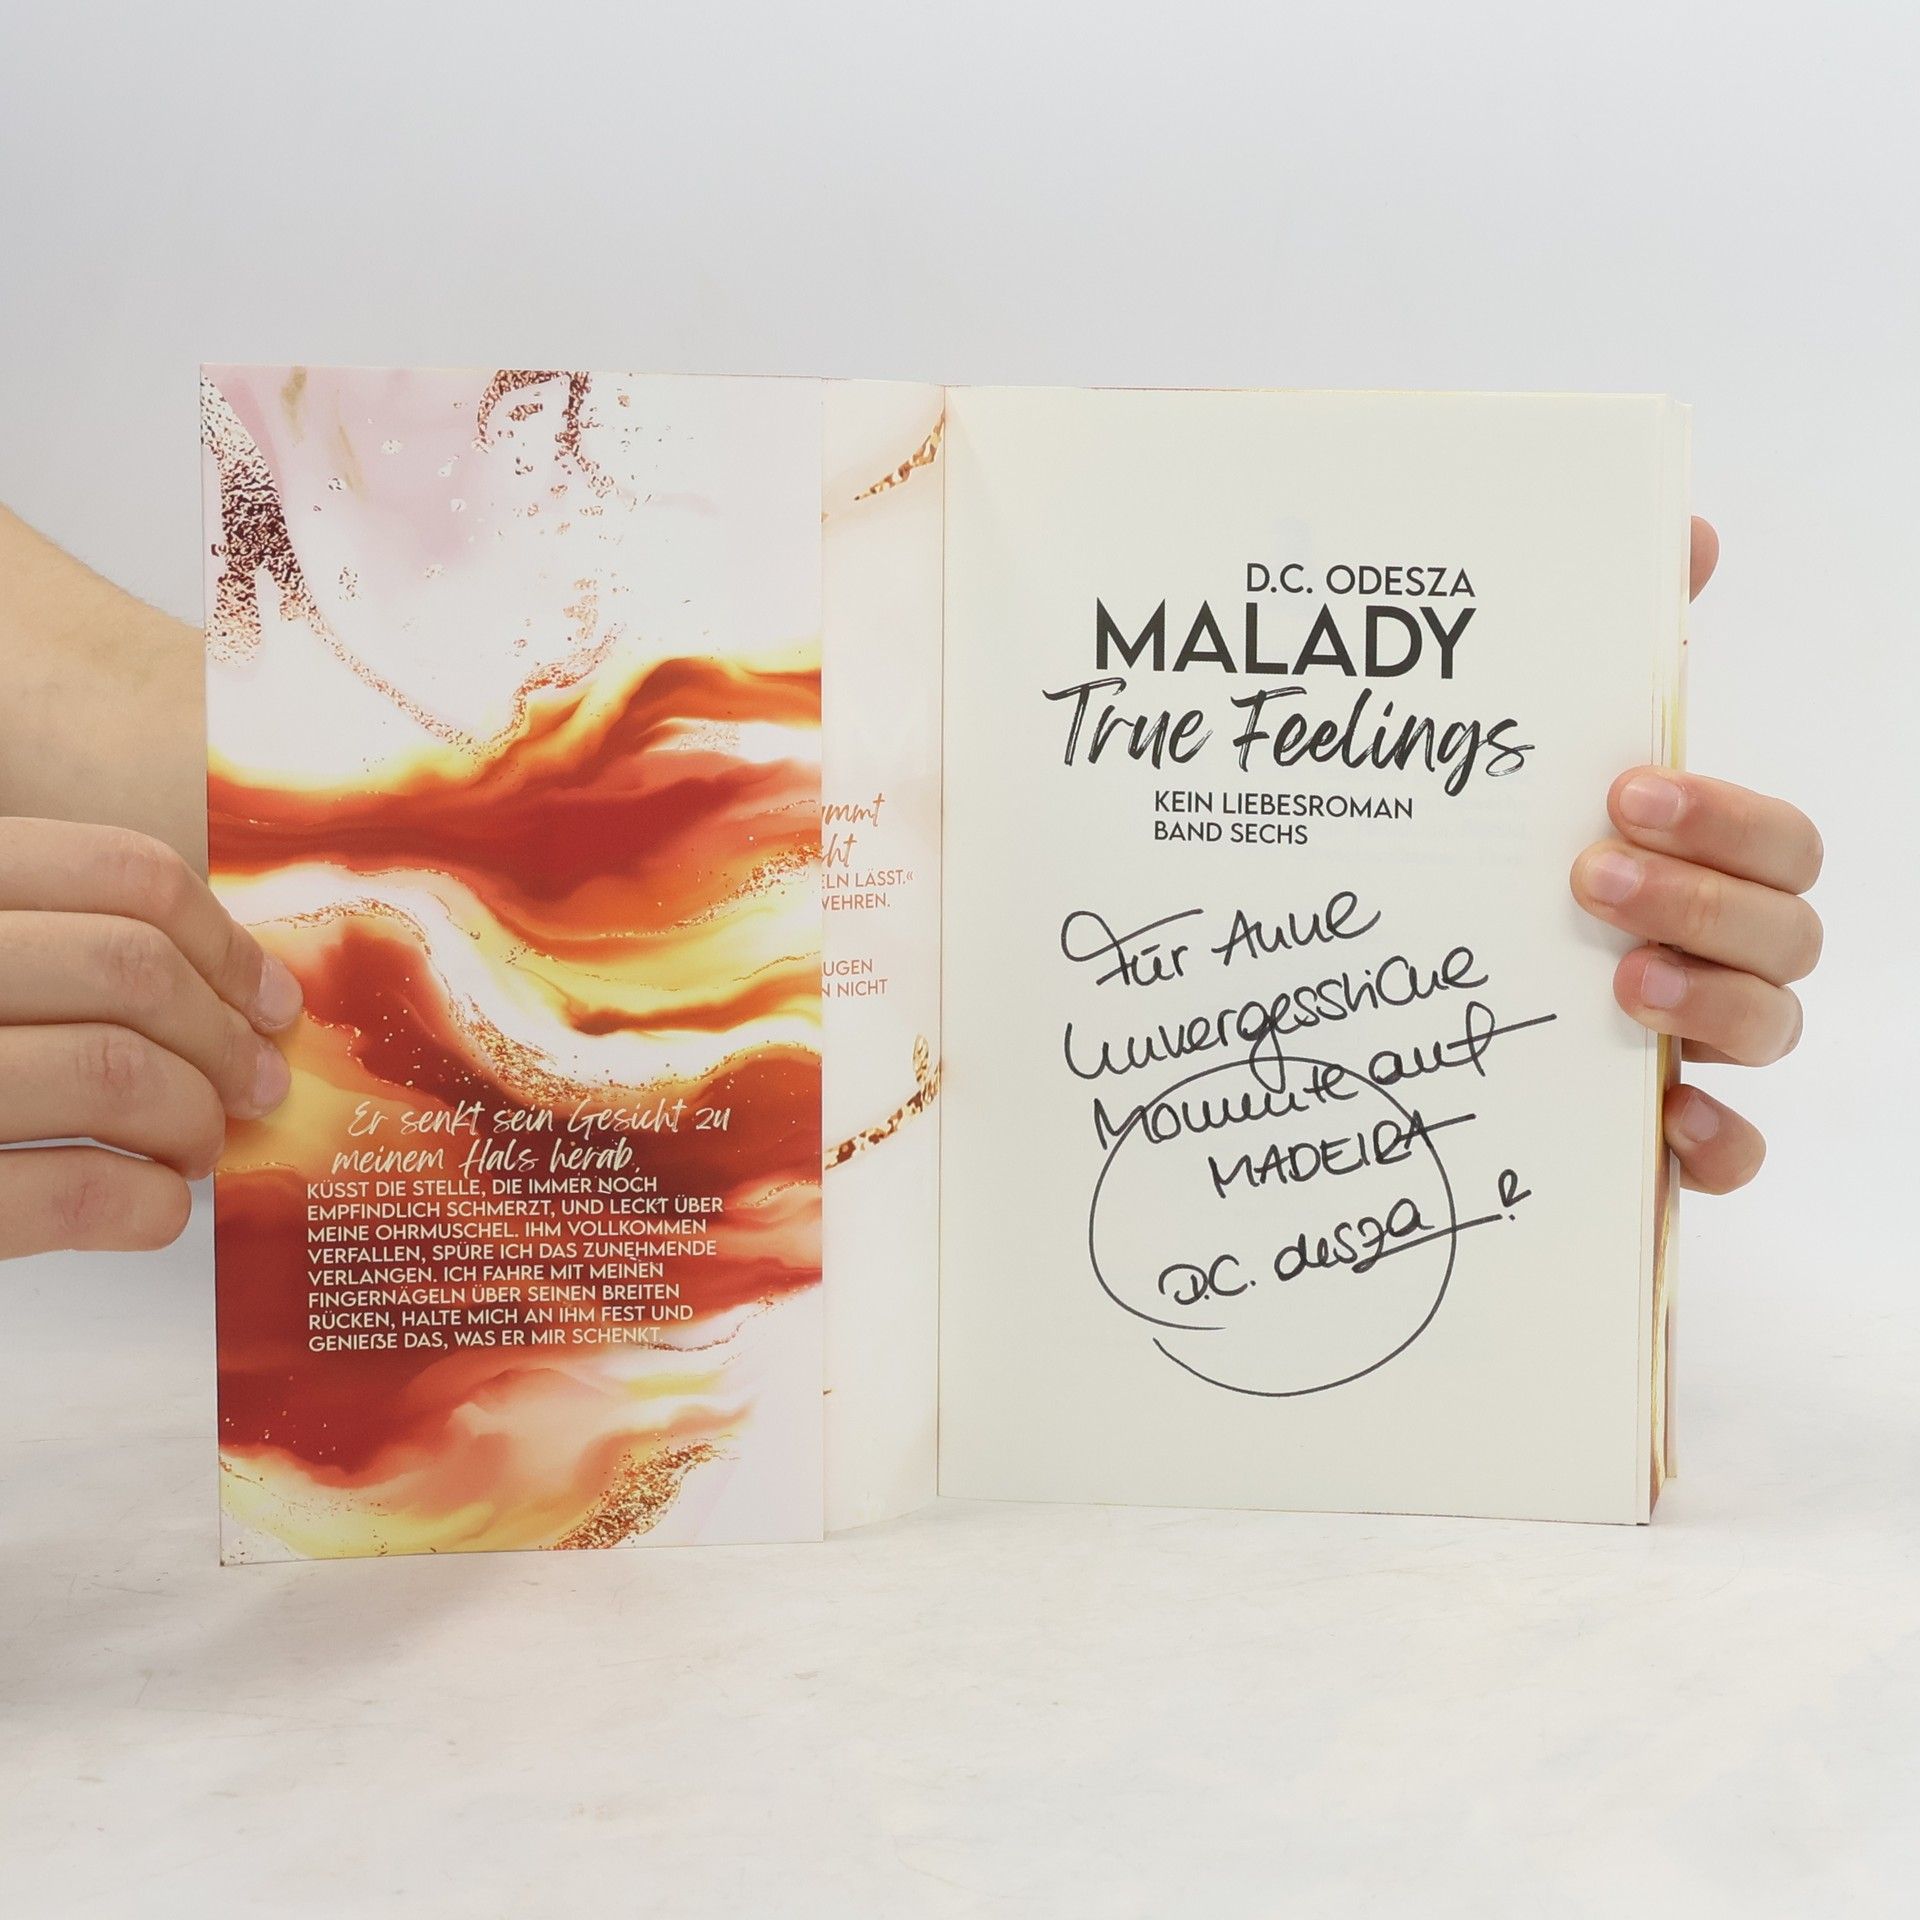 Er senkt sein Gesicht zu
meinem Hals herab,
KÜSST DIE STELLE, DIE IMMER NOCH
EMPFINDLICH SCHMERZT, UND LECKT ÜBER
MEINE OHRMUSCHEL. IHM VOLLKOMMEN
VERFALLEN, SPÜRE ICH DAS ZUNEHMENDE
VERLANGEN. ICH FAHRE MIT MEINEN
FINGERNÄGELN ÜBER SEINEN BREITEN
RÜCKEN, HALTE MICH AN IHM FEST UND
GENIEẞE DAS, WAS ER MIR SCHENKT.
ammt
cht
ELN LÄSST.«
WEHREN.
UGEN
N NICHT
D.C. ODESZA
MALADY
True Feelings
KEIN LIEBESROMAN
BAND SECHS
Für Anne
Unvergessliche
Momente auf
MADEIRA
D.C. Odesza